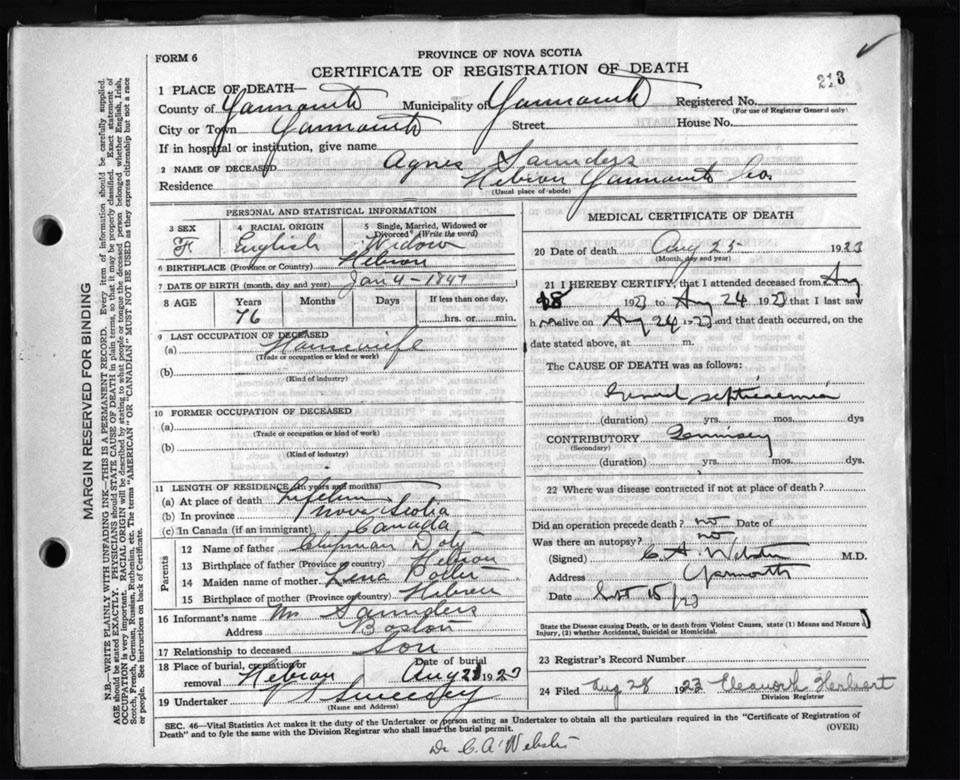 FORM 6
PROVINCE OF NOVA SCOTIA
CERTIFICATE OF REGISTRATION OF DEATH
213
1 PLACE OF DEATH—
County of Yarmouth Municipality of Yarmouth Registered No.
(For use of Registrar General only)
City or Town Yarmouth Street House No.
If in hospital or institution, give name
2 NAME OF DECEASED Agnes Saunders
Residence Hebron Yarmouth Co.
(Usual place of abode)
PERSONAL AND STATISTICAL INFORMATION
3 SEX 4 RACIAL ORIGIN 5 Single, Married, Widowed or Divorced (Write the word)
F. English Widow
6 BIRTHPLACE (Province or Country) Hebron
7 DATE OF BIRTH (month, day and year) Jan 4 - 1847
8 AGE Years Months Days If less than one day,
76 hrs. or min.
9 LAST OCCUPATION OF DECEASED
(a) Housewife
(Trade or occupation or kind or work)
(b)
(Kind of industry)
10 FORMER OCCUPATION OF DECEASED
(a)
(Trade or occupation or kind of work)
(b)
(Kind of industry)
11 LENGTH OF RESIDENCE (in years and months)
(a) At place of death Lifetime
(b) In province Nova Scotia
(c) In Canada (if an immigrant) Canada
Parents
12 Name of father Chipman Doty
13 Birthplace of father (Province or country) Hebron
14 Maiden name of mother Lena
15 Birthplace of mother (Province or country) Hebron
16 Informant's name Mr Saunders
Address Boston
17 Relationship to deceased Son
18 Place of burial, cremation or removal Hebron Date of burial Aug 28 1923
19 Undertaker V Sweeney
(Name and Address)
MEDICAL CERTIFICATE OF DEATH
20 Date of death Aug 25 1923
(Month, day and year)
21 I HEREBY CERTIFY, that I attended deceased from Aug
18 1923 to Aug 24 1923 that I last saw
h alive on Aug 24 1923 and that death occurred, on
date stated above, at m.
The CAUSE OF DEATH was as follows:
General septicaemia
(duration) yrs. mos. dys
CONTRIBUTORY
(Secondary)
(duration) yrs. mos. dys.
22 Where was disease contracted if not at place of death?
Did an operation precede death? no Date of
Was there an autopsy? no
(Signed) C. A. Webster M.D.
Address Yarmouth
Date Sept 15/23
State the Disease causing Death, or in death from Violent Causes, state (1) Means and Nature of
Injury, (2) whether Accidental, Suicidal or Homicidal.
23 Registrar's Record Number
24 Filed Aug 28 1923 Eleanor H Herbert
Division Registrar
SEC. 46—Vital Statistics Act makes it the duty of the Undertaker or person acting as Undertaker to obtain all the particulars required in the "Certificate of Registration of
Death" and to fyle the same with the Division Registrar who shall issue the burial permit.
(OVER)
Dr C. A. Webster
MARGIN RESERVED FOR BINDING
N.B.—WRITE PLAINLY WITH UNFADING INK—THIS IS A PERMANENT RECORD. Every item of information should be carefully supplied.
AGE should be stated EXACTLY. PHYSICIANS should STATE CAUSE OF DEATH in plain terms, so that it may be properly classified. Exact statement of
OCCUPATION is very important. RACIAL ORIGIN will be described by stating to what people or tongue the deceased person belonged whether English, Irish,
Scotch, French, German, Russian, Ruthenian, etc. The terms "AMERICAN" OR "CANADIAN" MUST NOT BE USED as they express citizenship but not a race
or people. See instructions on back of Certificate.